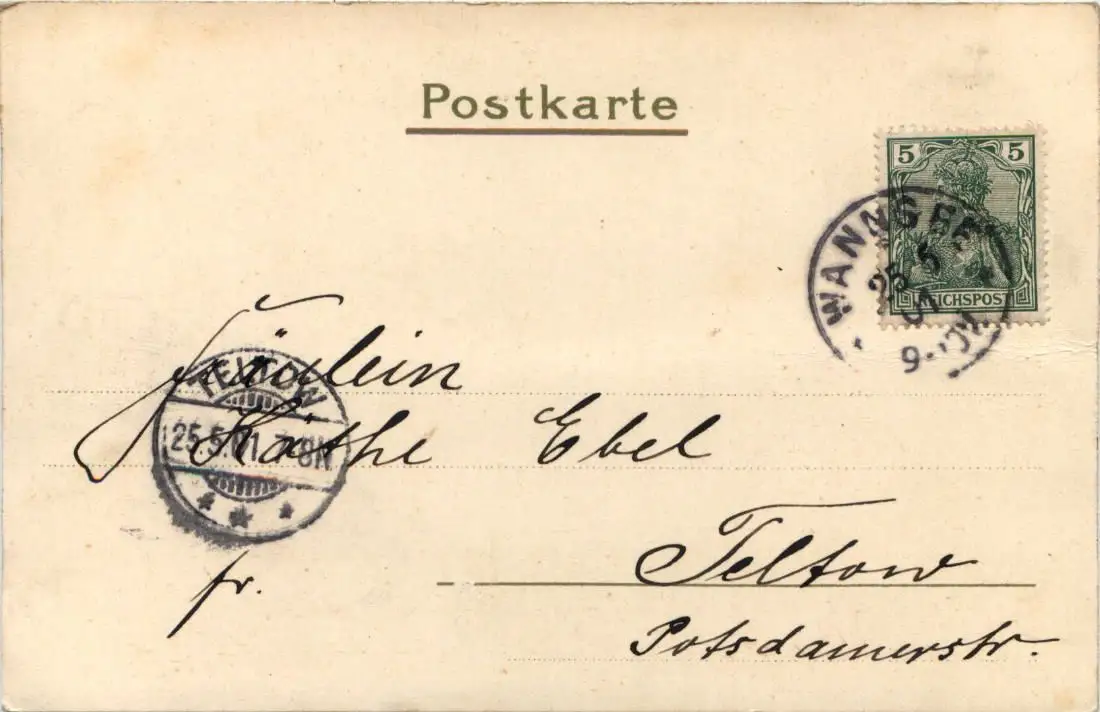 Postkarte
5 5
REICHSPOST
WANNSEE
25 5
01
9-10V
Fräulein
TELTOW
Käthe Ebel
25.5.01. 7-8N
Teltow
fr.
Potsdamerstr.